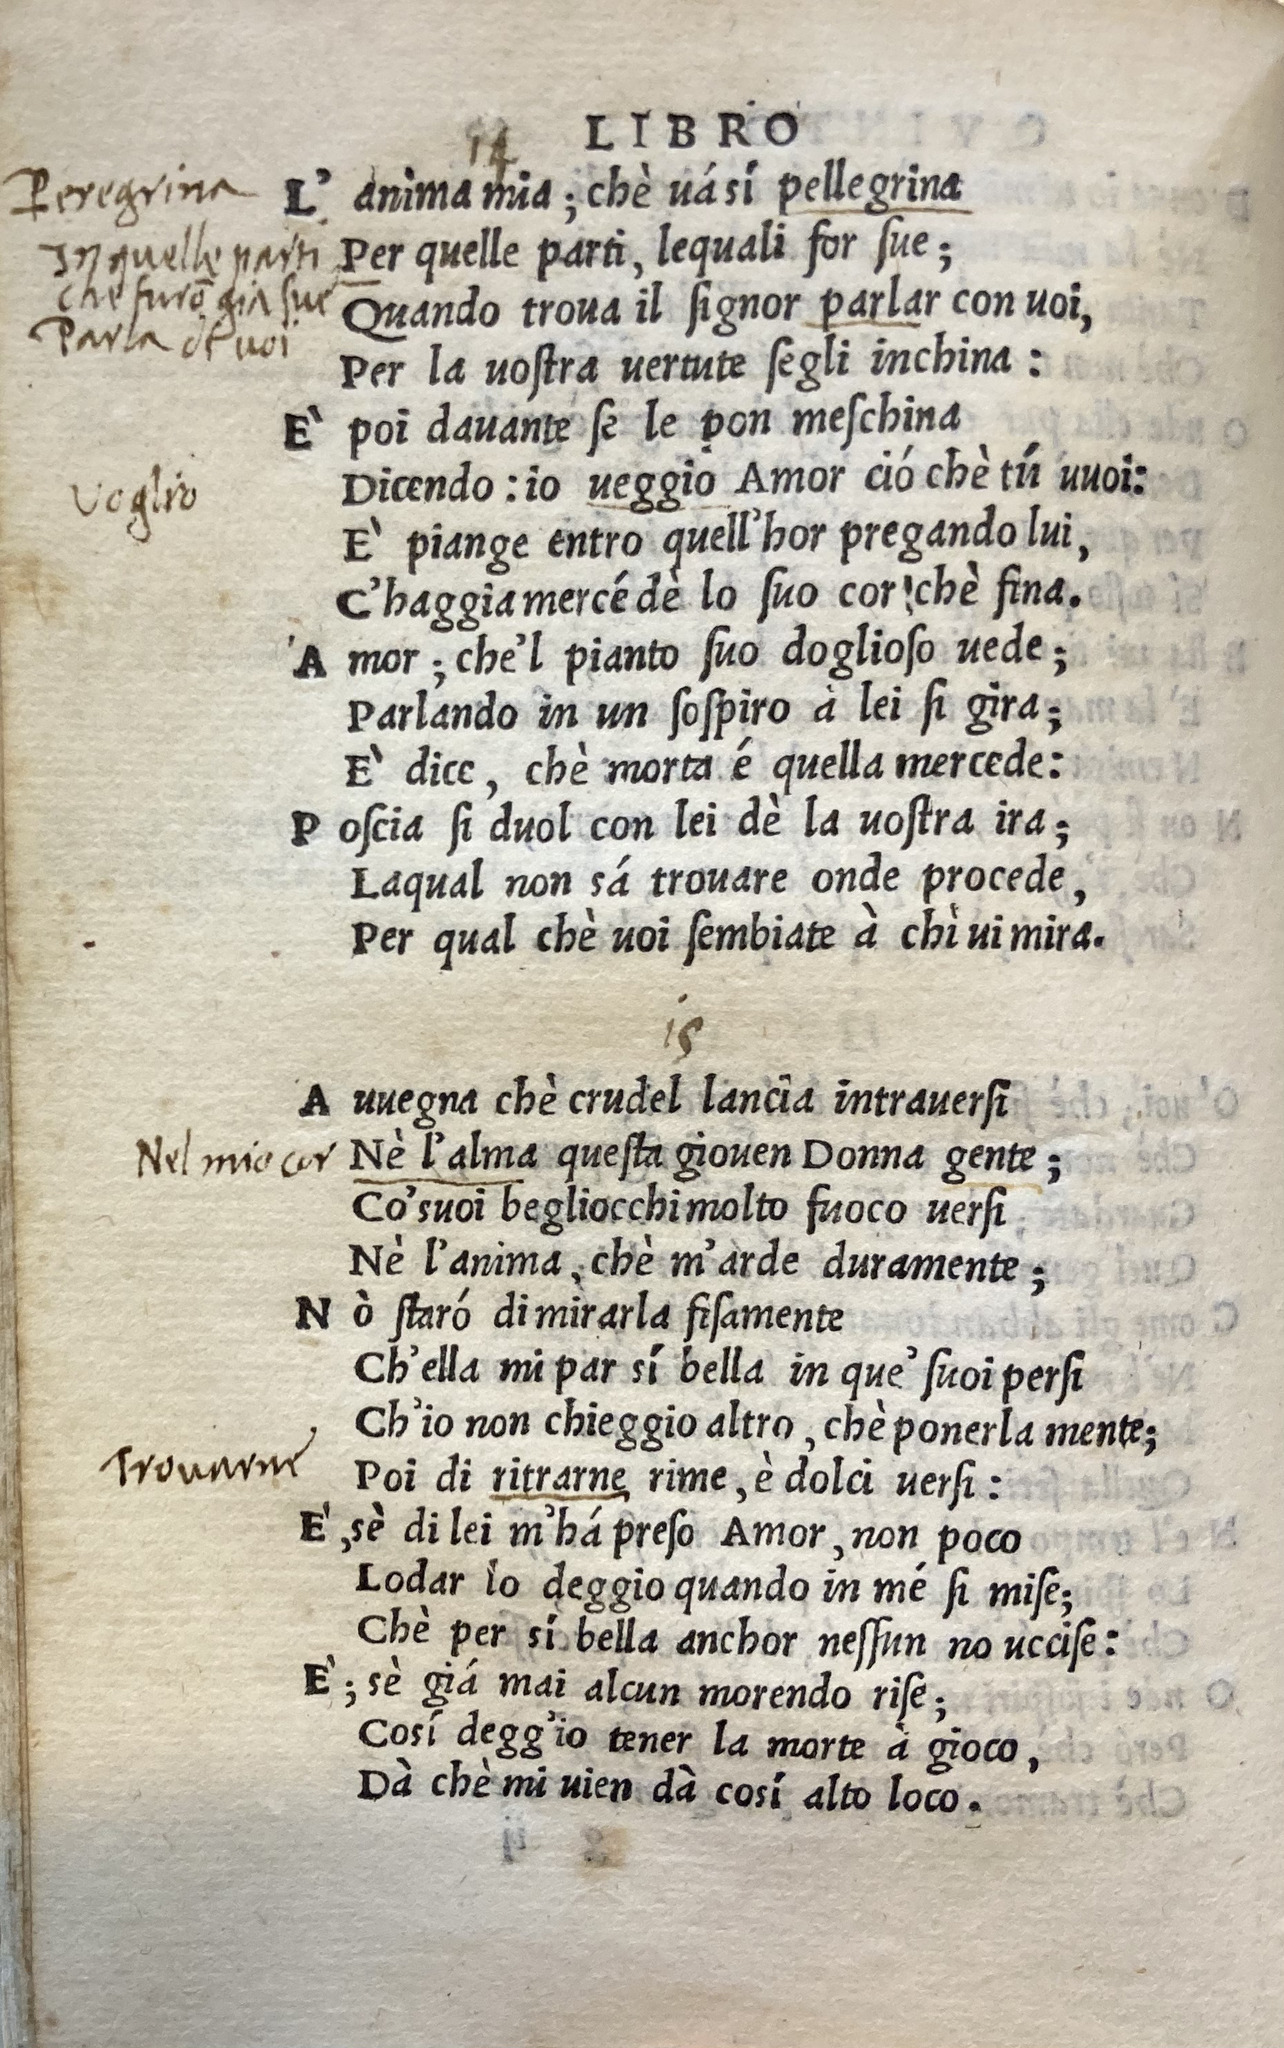 LIBRO
14
Peregrina
L' anima mia; chè uá sí pellegrina
In quelle parti
Per quelle parti, lequali for sue;
che furō gia sue
Quando troua il signor parlar con uoi,
Parla di uoi
Per la uostra uertute segli inchina:
E' poi dauante se le pon meschina
Voglio
Dicendo: io ueggio Amor ció chè tú uuoi:
E' piange entro quell'hor pregando lui,
C'haggia mercé dè lo suo cor! chè fina.
A mor; che'l pianto suo doglioso uede;
Parlando in un sospiro à lei si gira;
E' dice, chè morta é quella mercede:
P oscia si duol con lei dè la uostra ira;
Laqual non sá trouare onde procede,
Per qual chè uoi sembiate à chì ui mira.
15
A uuegna chè crudel lancia intrauersi
Nel mio cor
Nè l'alma questa giouen Donna gente;
Co'suoi begliocchi molto fuoco uersi
Nè l'anima, chè m'arde duramente;
N ò staró di mirarla fisamente
Ch'ella mi par sí bella in que' suoi persi
Ch'io non chieggio altro, chè ponerla mente;
Trouarne
Poi di ritrarne rime, è dolci uersi:
E', sè di lei m'há preso Amor, non poco
Lodar lo deggio quando in mé si mise;
Chè per sí bella anchor nessun no uccise:
E'; sè giá mai alcun morendo rise;
Cosí degg'io tener la morte à gioco,
Dà chè mi uien dà cosí alto loco.